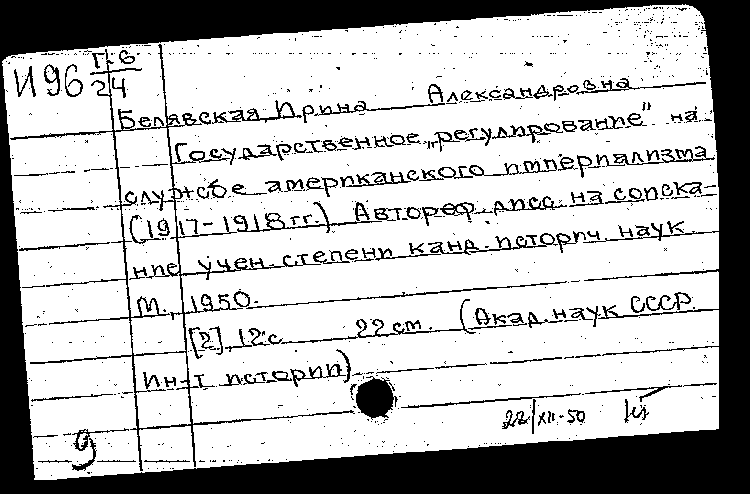 И96 Г-6/24
Белявская, Ирина Александровна
Государственное „регулирование" на
службе американского империализма
(1917-1918 гг.) Автореф. дисс. на соиска-
ние учен. степени канд. историч. наук.
М., 1950.
[2], 12 с 22 см. (Акад. наук СССР.
Ин-т истории)
22/XII-50
9